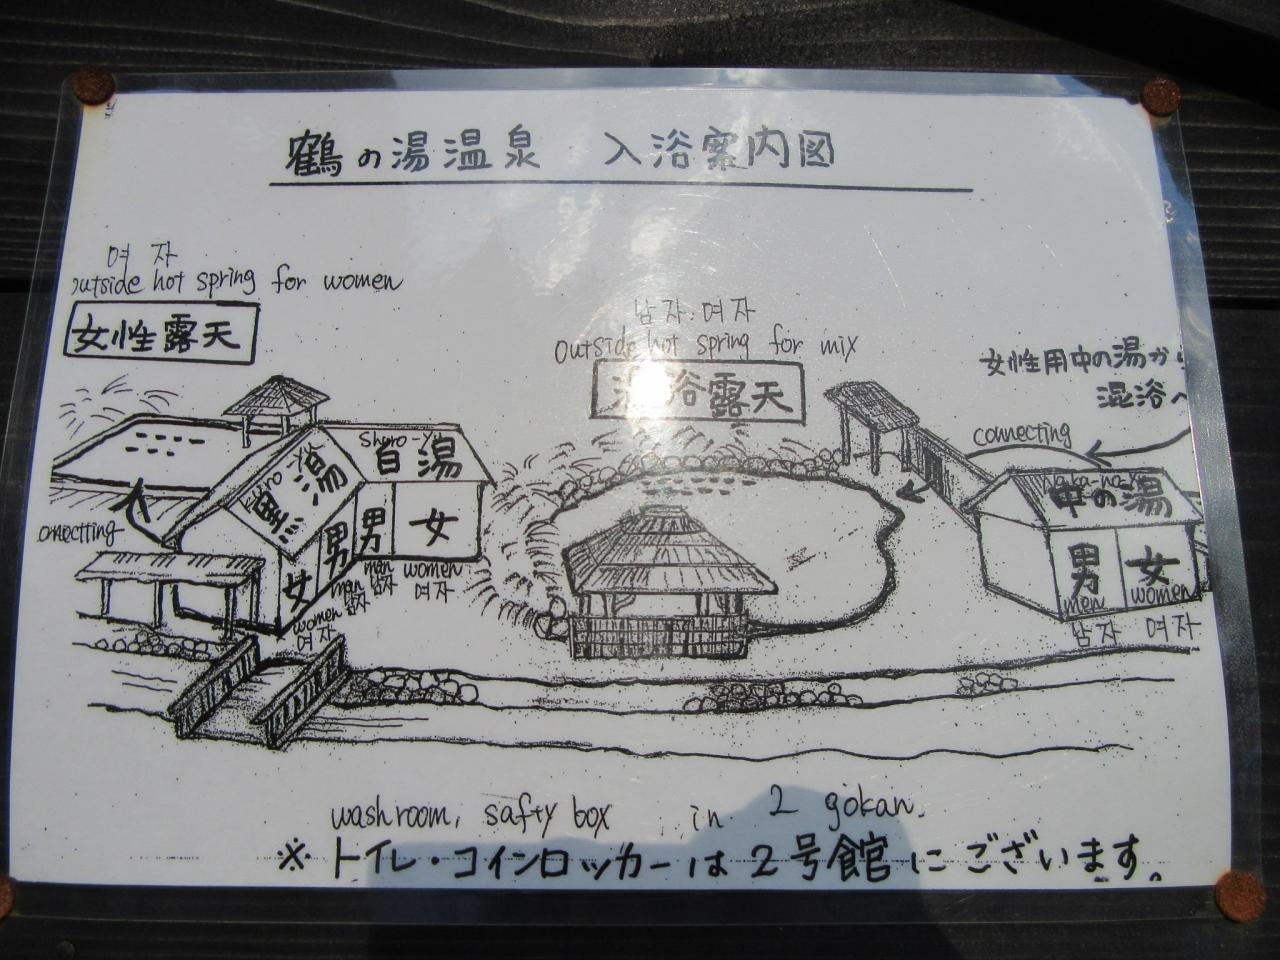 鶴の湯温泉 入浴案内図
여 자
outside hot spring for women
女性露天
남자·여자
outside hot spring for mix
浴露天
女性用中の湯から
混浴へ
connecting
shiro-yu
白湯
kuro-yu
黒湯
naka-no-yu
中の湯
onnectting
女
男
男
女
women
여자
man
남자
man
남자
women
여자
男
女
men
women
남자
여자
washroom, safty box in 2 gokan.
※ トイレ・コインロッカーは2号館にございます。